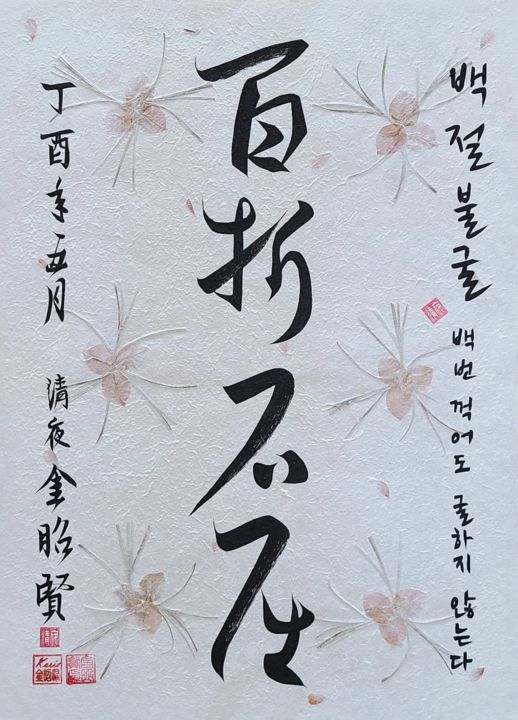 백절불굴 백번 꺽어도 굴하지 않는다
百折不屈
丁酉年五月 清夜 金昭賢